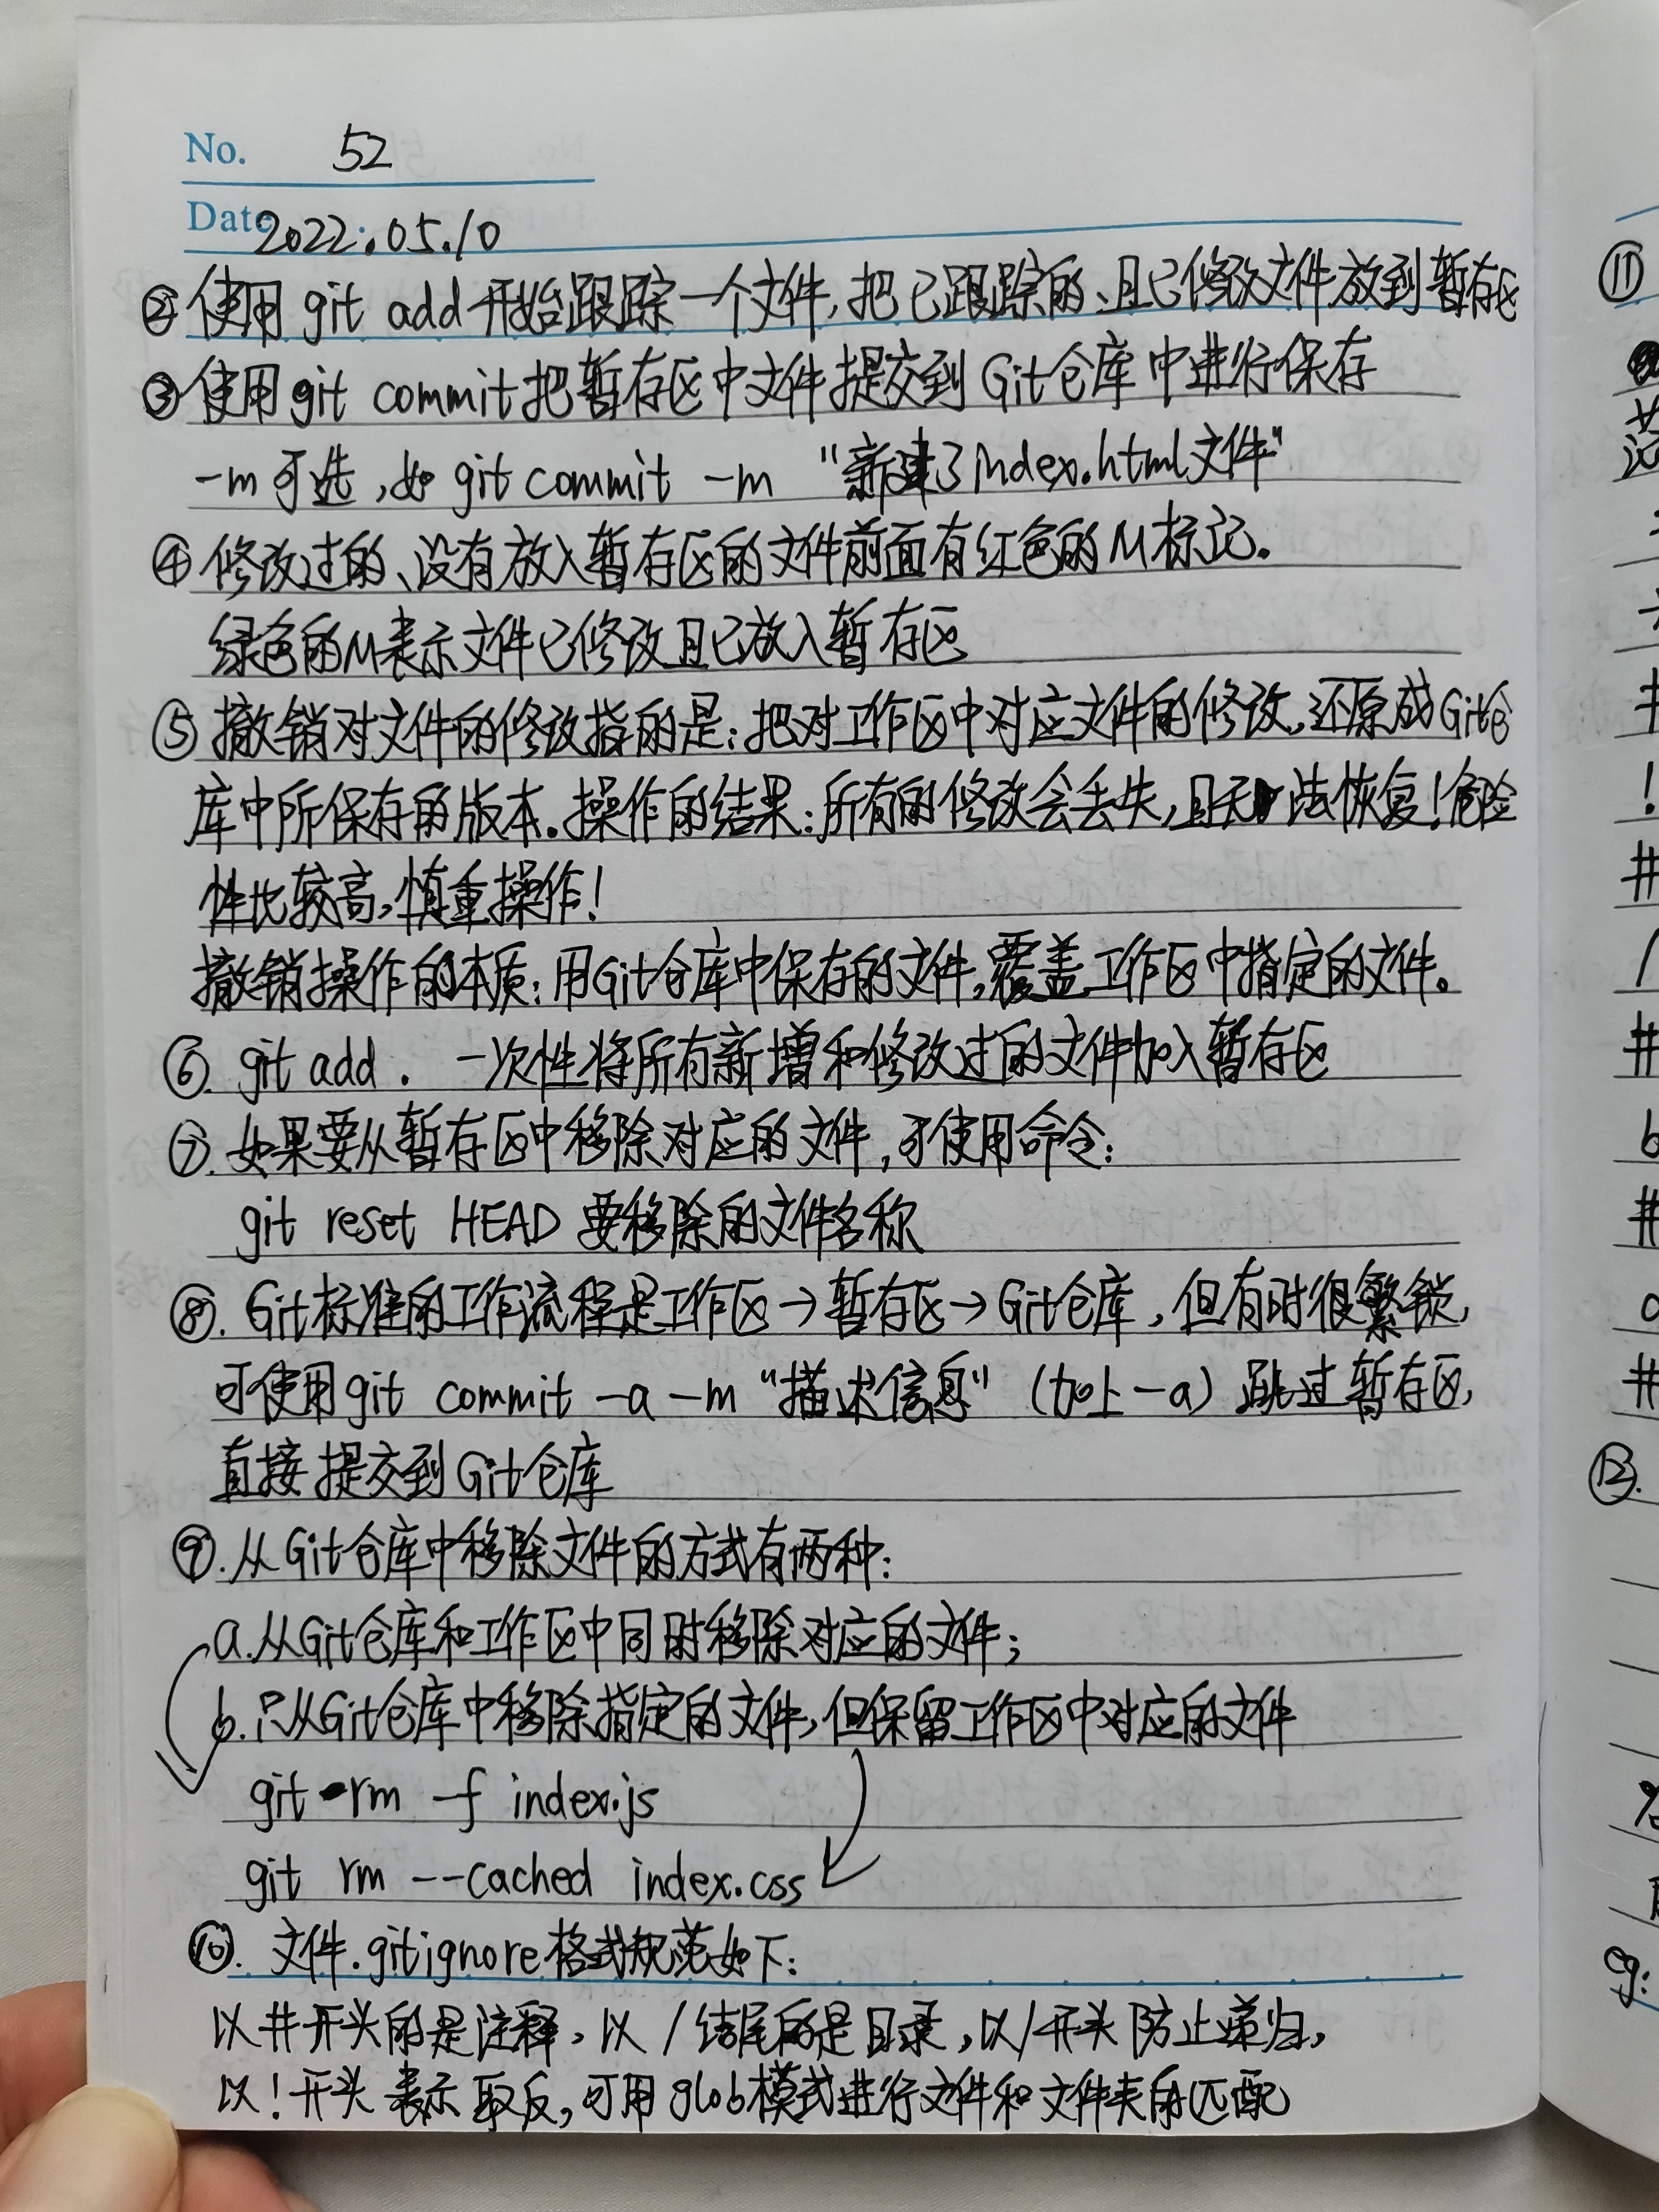 No. 52
Date 2022.05.10
② 使用 git add 开始跟踪一个文件,把已跟踪的、且已修改文件放到暂存区
③ 使用git commit把暂存区中文件提交到Git仓库中进行保存
-m可选,如 git commit -m "新建了index.html文件"
④ 修改过的、没有放入暂存区的文件前面有红色的M标记。
绿色的M表示文件已修改且已放入暂存区
⑤ 撤销对文件的修改指的是:把对工作区中对应文件的修改,还原成Git仓
库中所保存的版本。操作的结果:所有的修改会丢失,且无法恢复!危险
性比较高,慎重操作!
撤销操作的本质:用Git仓库中保存的文件,覆盖工作区中指定的文件。
⑥. git add . 一次性将所有新增和修改过的文件加入暂存区
⑦. 如果要从暂存区中移除对应的文件,可使用命令:
git reset HEAD 要移除的文件名称
⑧. Git标准的工作流程是工作区→暂存区→Git仓库,但有时很繁锁,
可使用git commit -a -m "描述信息" (加上-a) 跳过暂存区,
直接提交到Git仓库
⑨. 从Git仓库中移除文件的方式有两种:
a.从Git仓库和工作区中同时移除对应的文件;
b.只从Git仓库中移除指定的文件,但保留工作区中对应的文件
git rm -f index.js
git rm --cached index.css
⑩. 文件.gitignore格式规范如下:
以#开头的是注释,以/结尾的是目录,以/开头防止递归,
以!开头表示取反,可用glob模式进行文件和文件夹的匹配
⑪
!
#
/
#
b
#
a
#
⑫.
eg: